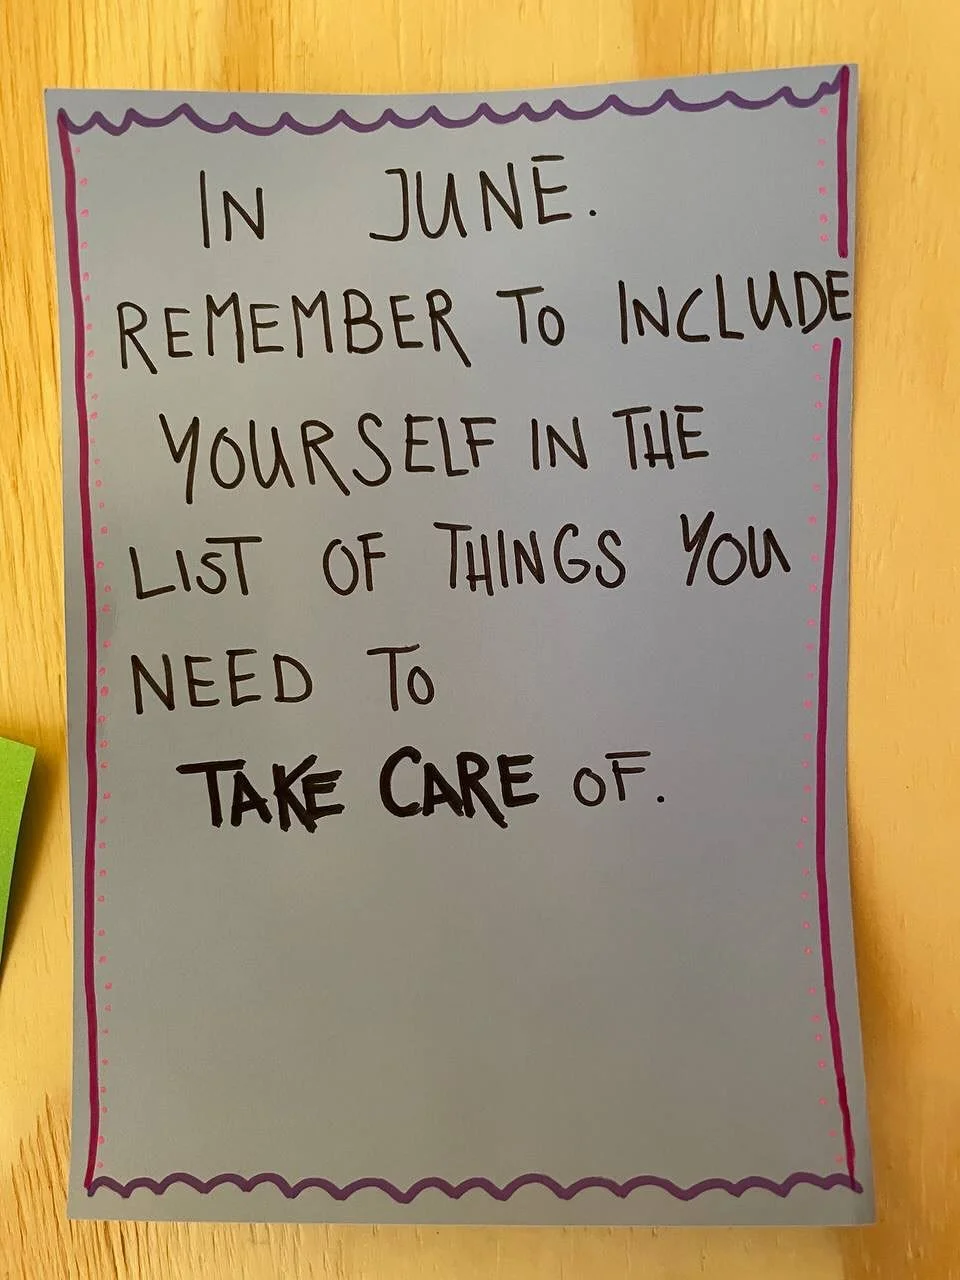 IN JUNE.
REMEMBER TO INCLUDE
YOURSELF IN THE
LIST OF THINGS YOU
NEED TO
TAKE CARE OF.